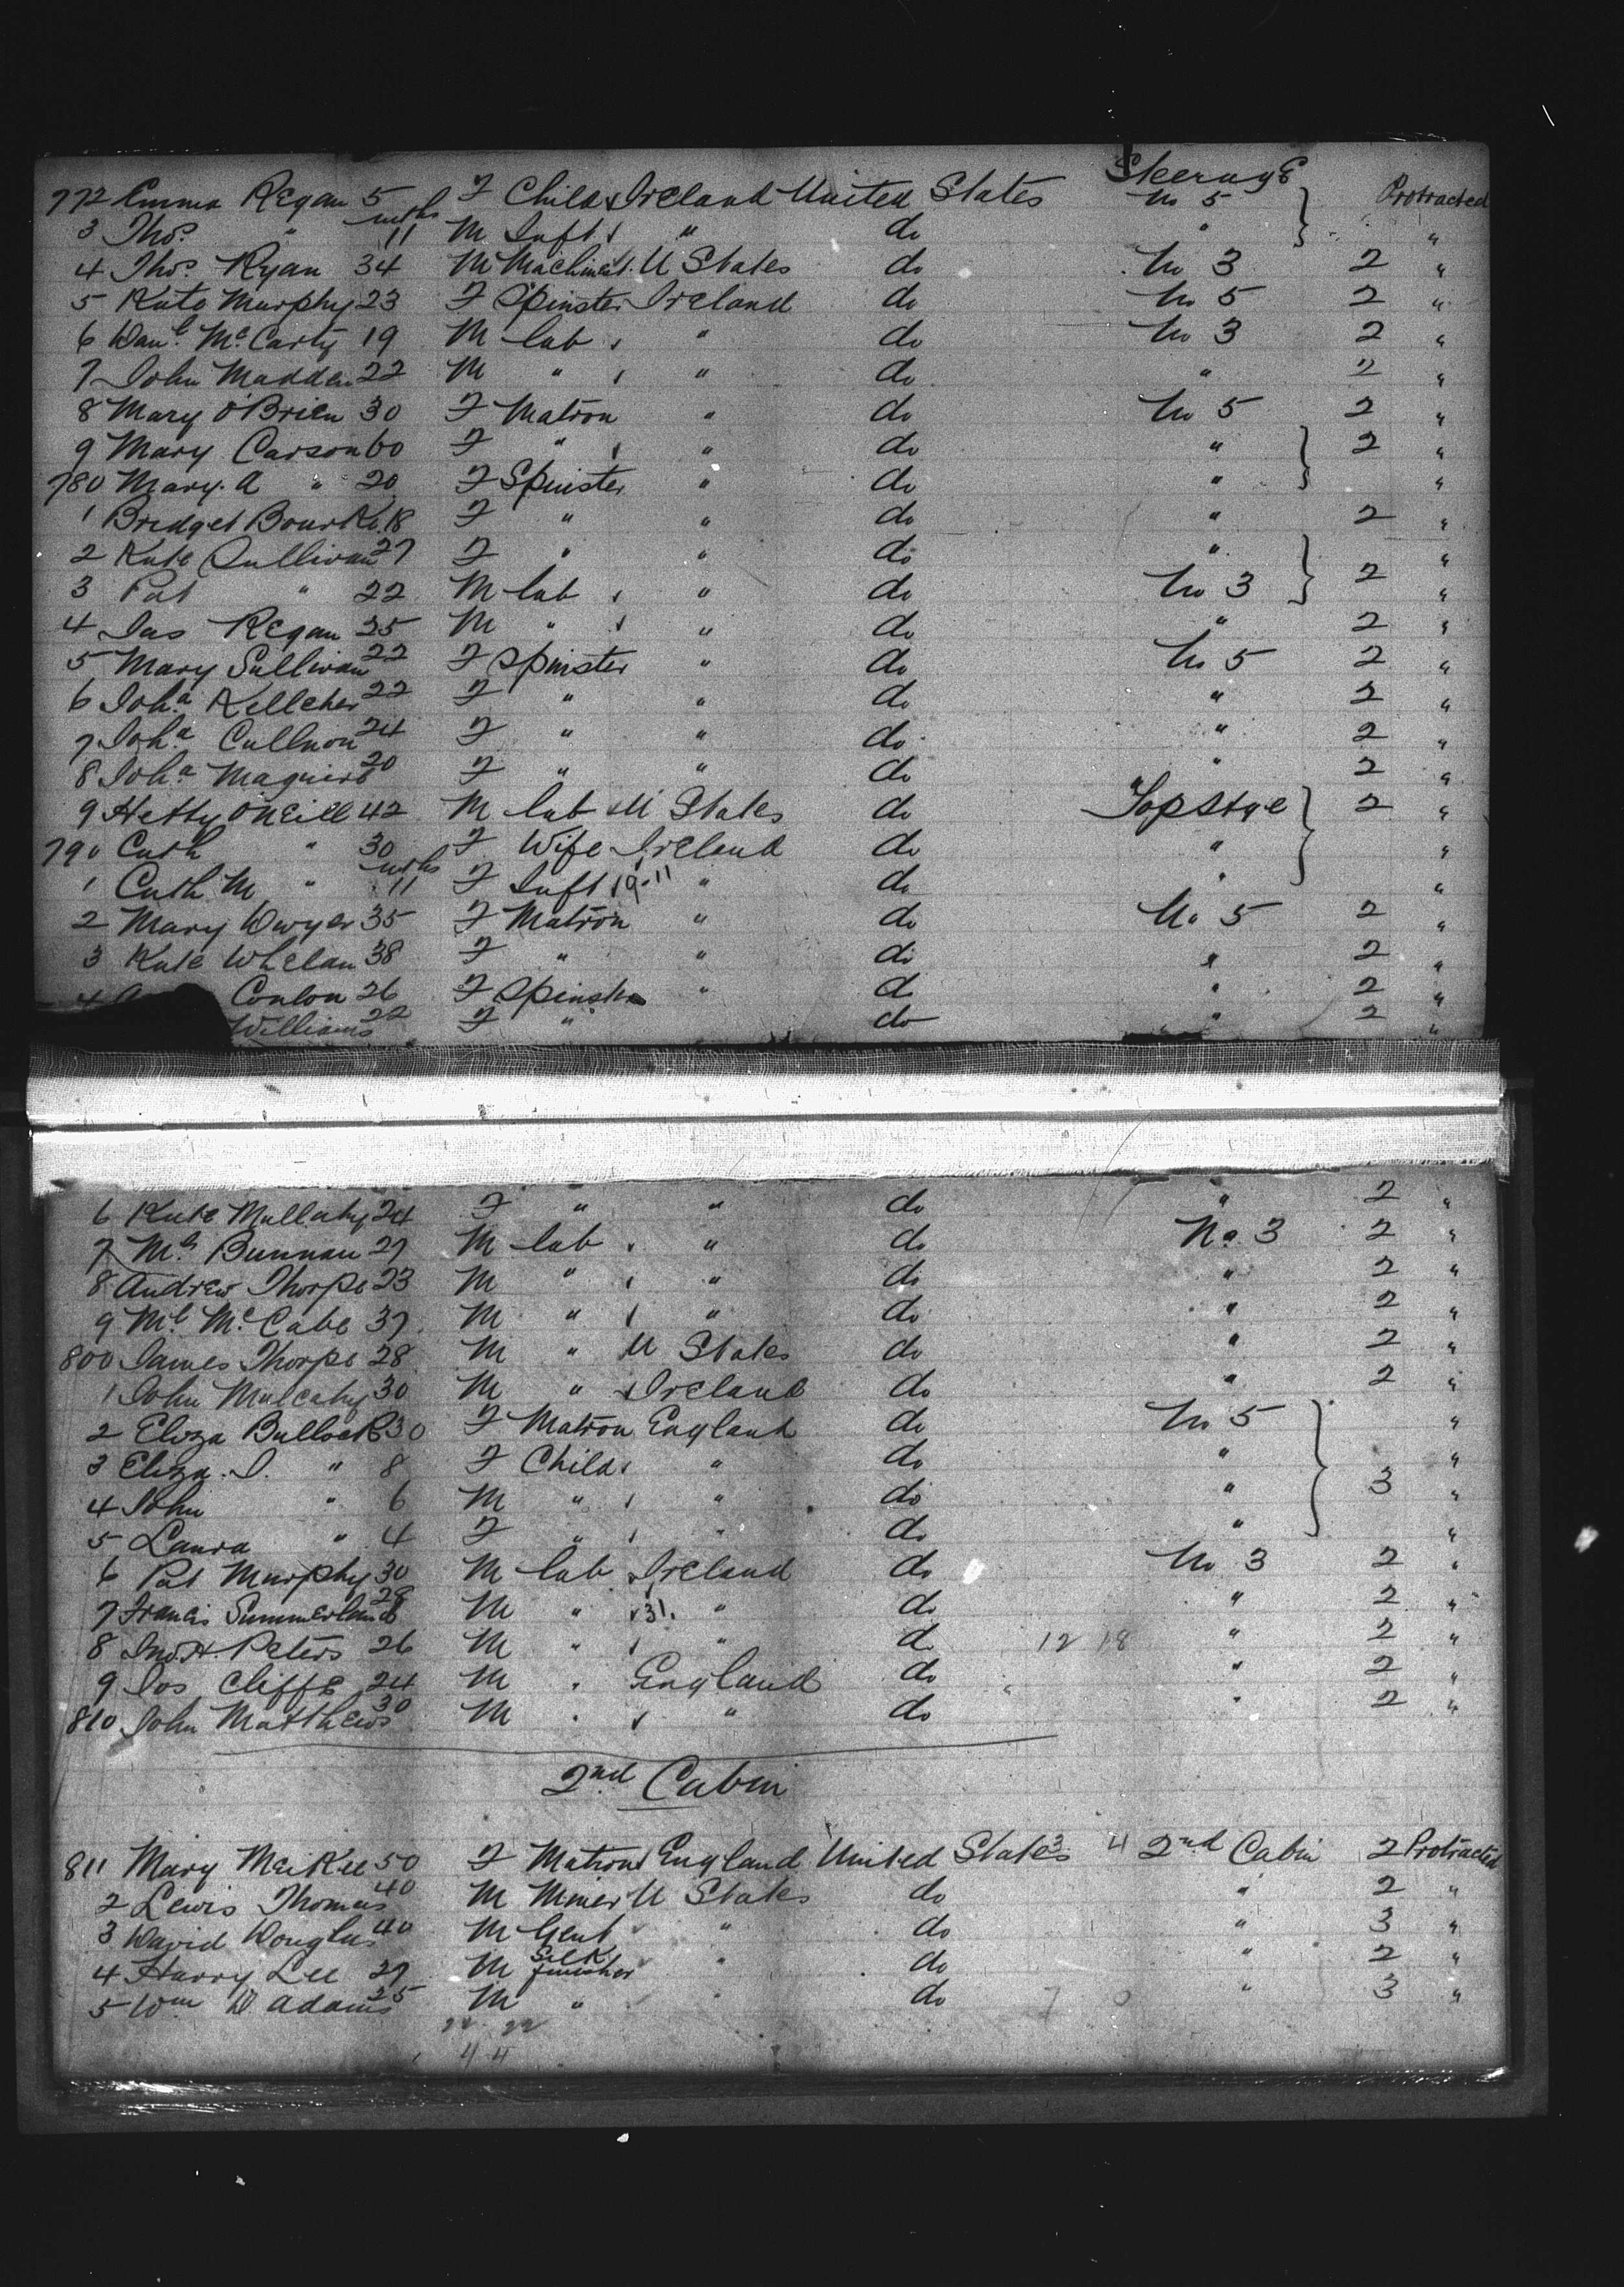 Steerage
772 Emma Regan 5 F Child Ireland United States No 5 Protracted
3 Thos " mths 11 M Inft " do " "
4 Thos Ryan 34 M Machinest U States do No 3 2 "
5 Kate Murphy 23 F Spinster Ireland do No 5 2 "
6 Danl McCarty 19 M lab " do No 3 2 "
7 John Madden 22 M " " do " 2 "
8 Mary O'Brien 30 F Matron " do No 5 2 "
9 Mary Carson 60 F " " do " 2 "
780 Mary A " 20 F Spinster " do " "
1 Bridget Bourke 18 F " " do " 2 "
2 Kate Sullivan 27 F " " do " "
3 Pat " 22 M lab " do No 3 2 "
4 Jas Regan 25 M " " do " 2 "
5 Mary Sullivan 22 F Spinster " do No 5 2 "
6 Joha Kelleher 22 F " " do " 2 "
7 Joha Cullnon 24 F " " do " 2 "
8 Joha Maguire 20 F " " do " 2 "
9 Hetty O'Neill 42 M lab U States do Top Stge 2 "
790 Cath " 30 F Wife Ireland do " "
1 Cath M " mths 11 F Inft 9-11 " do " "
2 Mary Dwyer 35 F Matron " do No 5 2 "
3 Kate Whelan 38 F " " do " 2 "
4 Conlon 26 F Spinster " do " 2 "
Williams 22 F " do " 2 "
6 Kate Mullahy 24 F " " do " 2 "
7 Ml Bunnan 27 M lab " do No. 3 2 "
8 Andrew Thorpe 23 M " " do " 2 "
9 Ml McCabe 37 M " " do " 2 "
800 James Thorpe 28 M " U States do " 2 "
1 John Mulcahy 30 M " Ireland do " 2 "
2 Eliza Bullock 30 F Matron England do No 5 "
3 Eliza J. " 8 F Child " do " "
4 John " 6 M " " do " 3 "
5 Laura " 4 F " " do " "
6 Pat Murphy 30 M lab Ireland do No 3 2 "
7 Francis Summerland 28 M " 31. " do " 2 "
8 Jno. H. Peters 26 M " " do 12 18 " 2 "
9 Jos Cliffe 24 M " England do " 2 "
810 John Matthews 30 M " " do " 2 "
2nd Cabin
811 Mary Meikle 50 F Matron England United States 3 4 2nd Cabin 2 Protracted
2 Lewis Thomas 40 M Miner U States do " 2 "
3 David Douglas 40 M Gent " do " 3 "
4 Harry Lee 27 M Silk finisher " do " 2 "
5 Wm D Adams 25 M " " do " 3 "
22 22
4 4